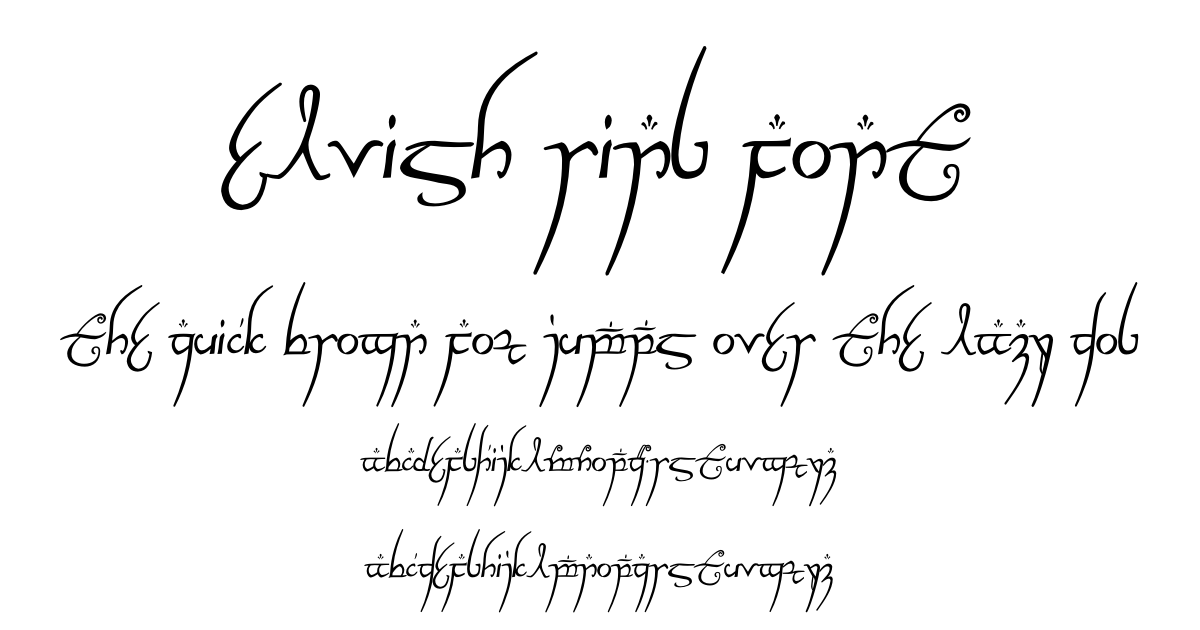 Elvish Ring Font
The quick brown fox jumps over the lazy dog
abcdefghijklmnopqrstuvwxyz
abcdefghijklmnopqrstuvwxyz